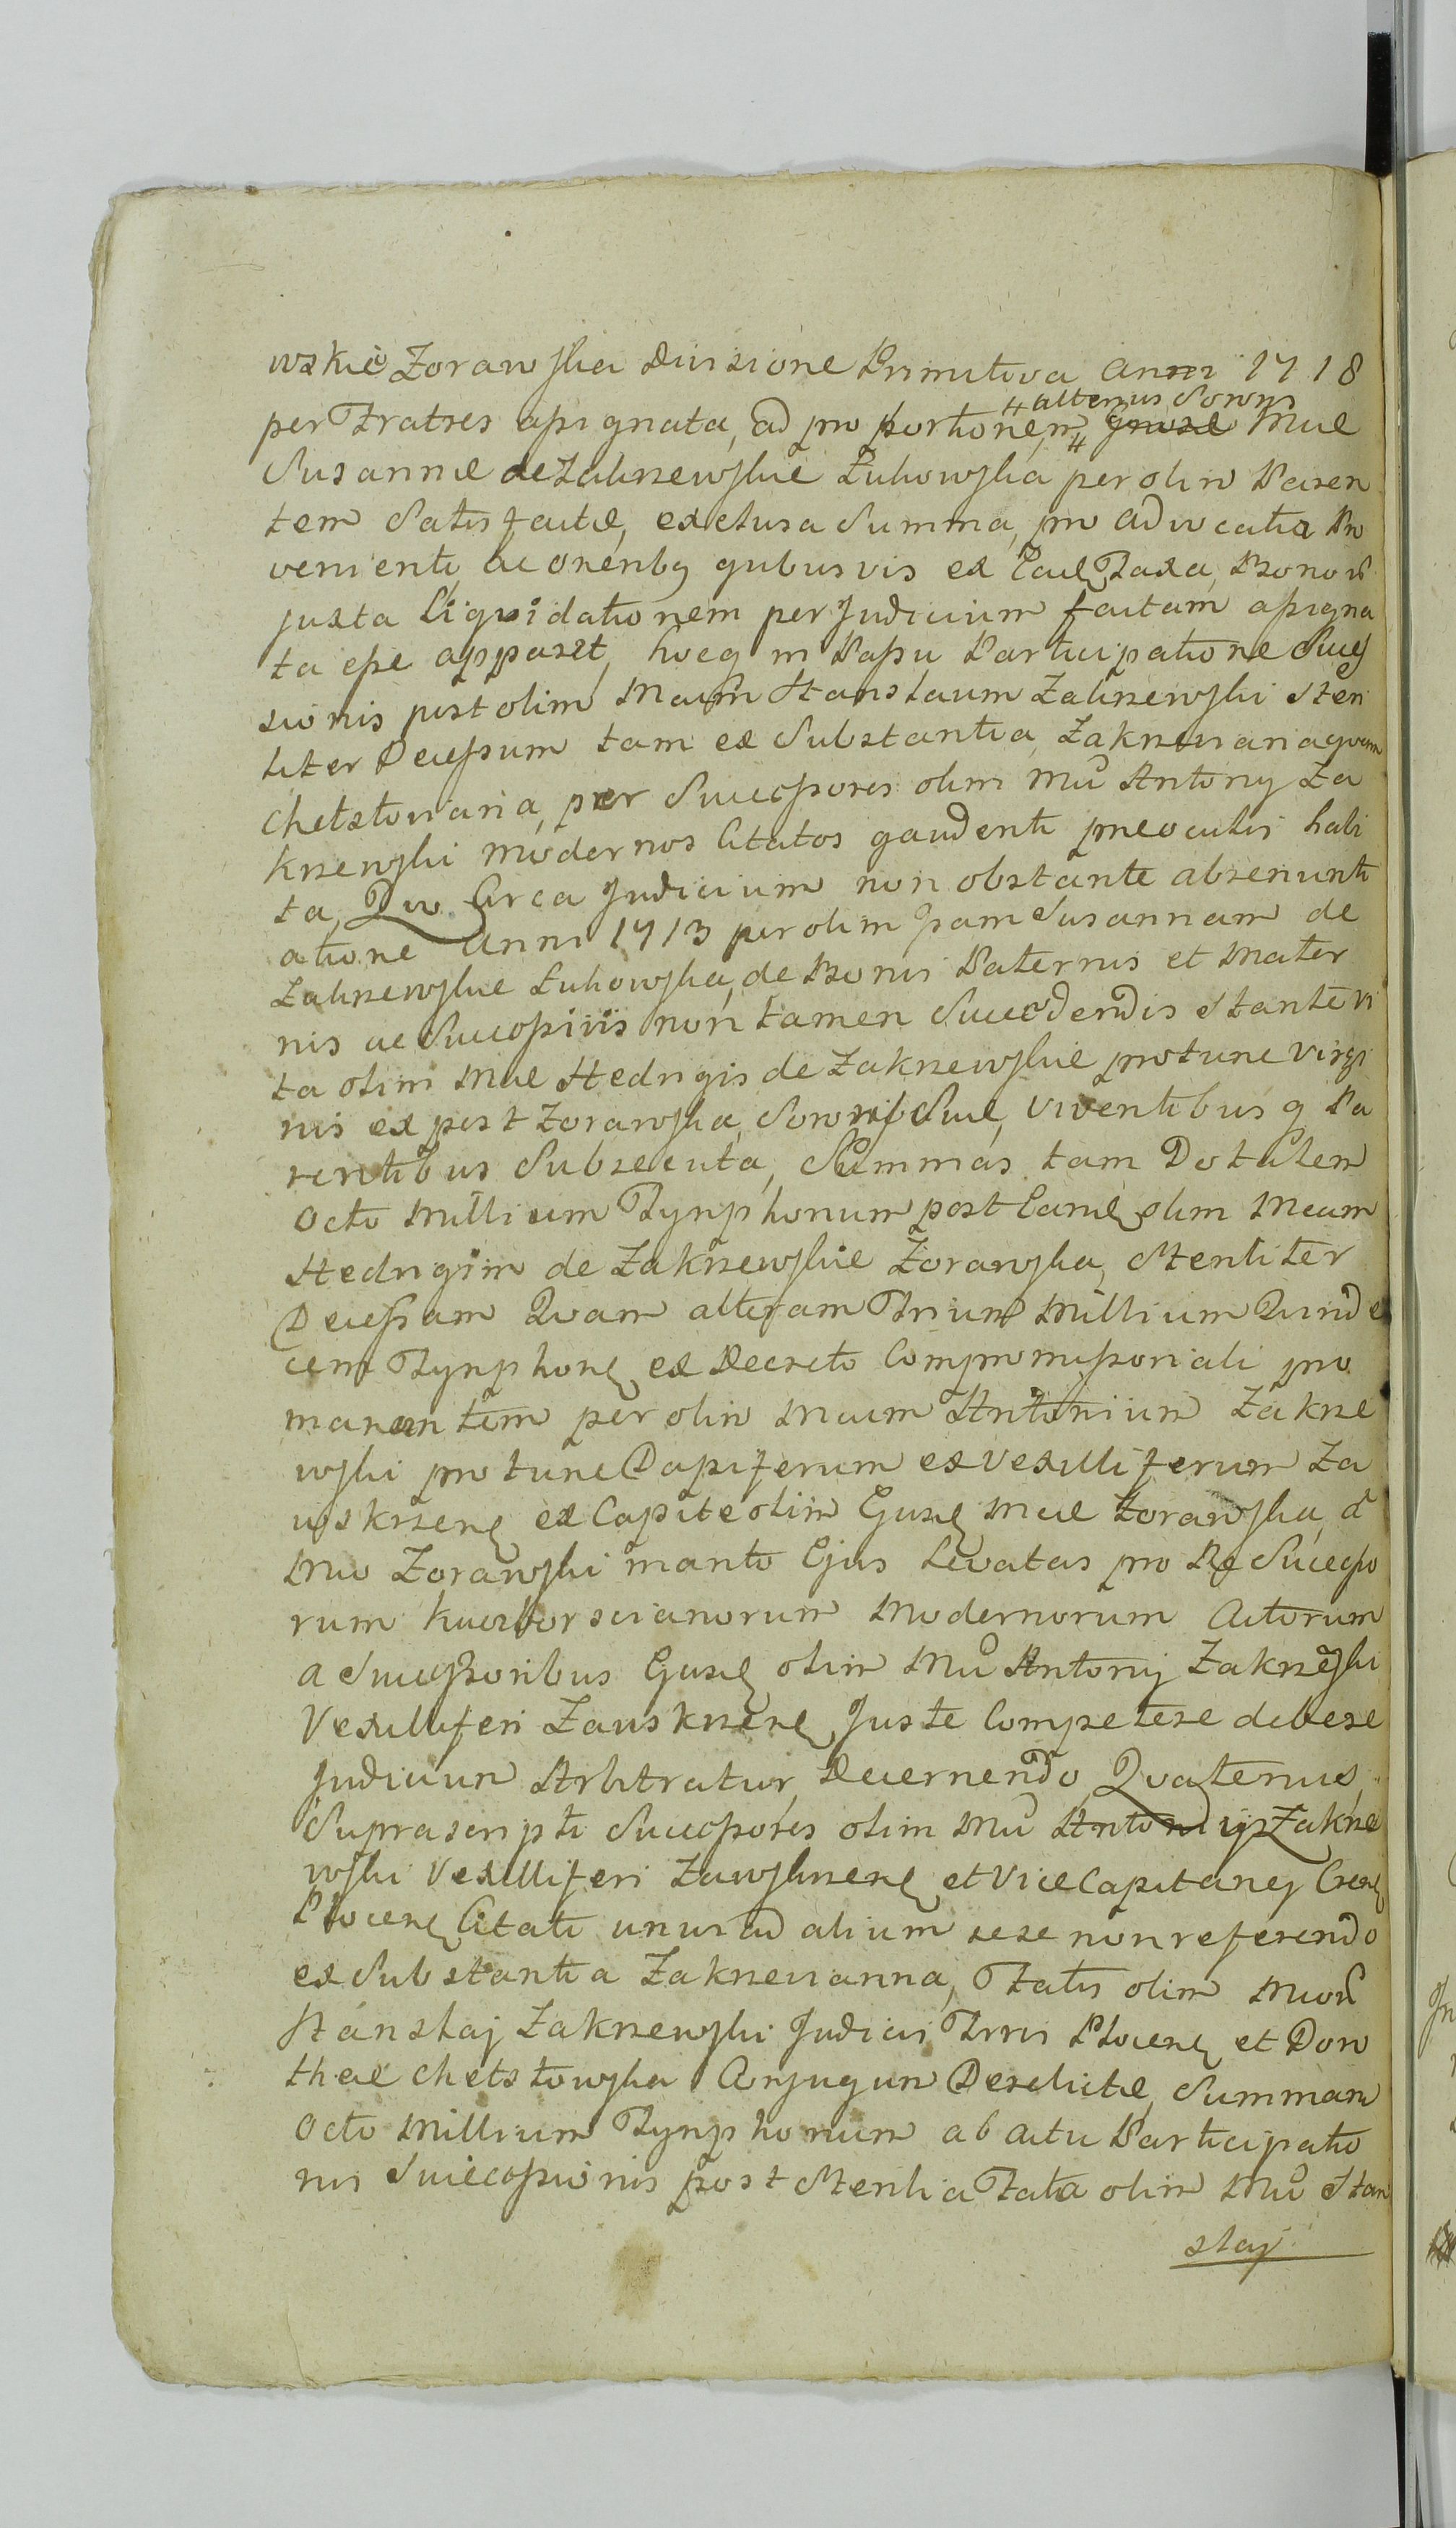 wskie Zorawska divisione Primitiva anni 1718
# alterius Sororis
per Fratres assignata, ad pro portionem # Mae
Susannae de Zakrzewskie Łukowska per olim Paren
tem Satisfactae, exclusa Summa, pro advocatia Pro
venienti, ac onenbg quibusvis ex Taxa, Bonor
juxta Liquidationem per Judicium factam assigna
ta esse apparet, hocq in Passu Participatione Succes
sionis post olim Mcum Stanslaum Zakrzewski Steri
liter Decessum tam ex Substantia Zakrzewiana quam
Chelstoviana, per Successores olim Mci Antonij Za
krzewski modernos Citatos gaudenti prae oculis habi
ta, Quo Circa Judicium non obstante abrenunti
atione Anni 1713 per olim Ipsam Susannam de
Zakrzewskie Łukowska, de Bonis Paternis et Mater
nis ac Successivis non tamen Succedendis Stante vi
ta olim Mae Hedvigis de Zakrzewskie pro tunc Virgi
nis ex post Zorawska, Sororis Suae, Viventibus q Pa
rentibus Subsecuta, Summas tam Dotalem
Octo Millium Tynphonum post olim Mcam
Hedvigim de Zakrzewskie Zorawska, Steriliter
Decessam Quam alteram Trium Millium Quinde
cem Tynphonum ex Decreto Compromissoriali pro
manantem per olim Mcum Antonium Zakrze
wski pro tunc Dapiferum ex Vexilliferum Za
wskrzen ex Capite olim Mae Zorawska, a
Mco Zorawski marito Ejus Levatas pro Re Successo
rum modernorum Actorum
a Successoribus olim Mci Antonij Zakrzewski
Vexilliferi Zawskrzen, Juste Competere debere
Judicium Arbitratur, Decernendo, Quatenus
Suprascripti Successores olim Mci Antonij Zakrze
wski Vexilliferi Zawskrzen et ViceCapitanej
Plocen Citati unus ad alium sese non referendo
ex Substantia Zakrzewianna, Fatis olim Mcor
Stanslaj Zakrzewski Judicis Trris Plocen et Doro
theae Chelstowska Conjugum Derelictae, Summam
Octo Millium Tynphonum ab actu Participatio
nis Successionis post Sterilia Fata olim Mci Stan
slaj